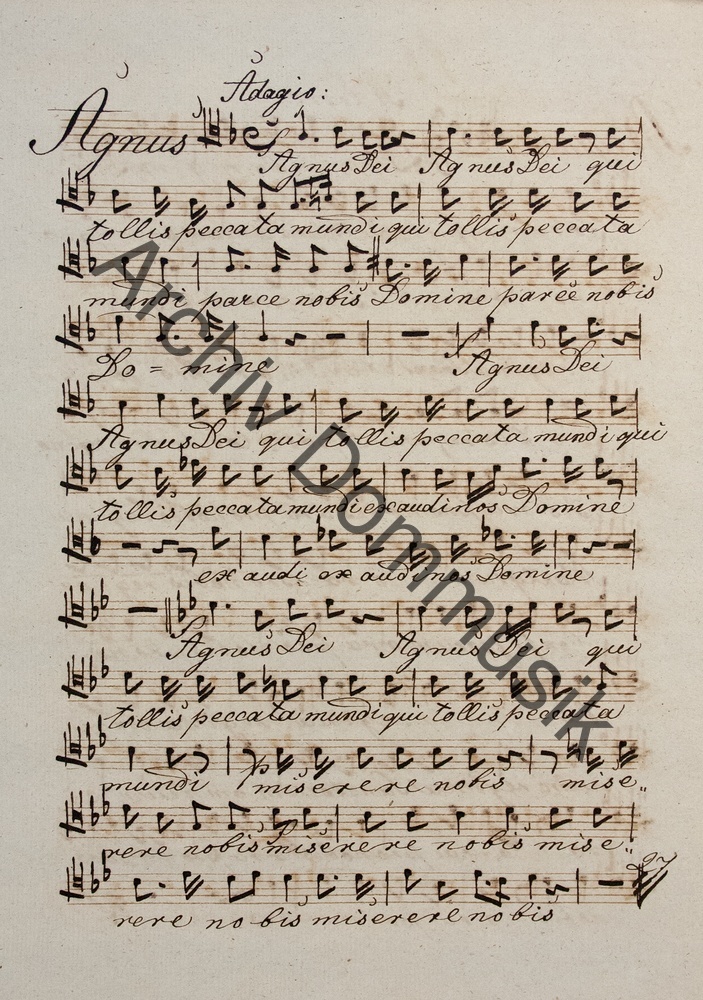 Adagio:
Agnus
Agnus Dei Agnus Dei qui
tollis peccata mundi qui tollis peccata
mundi parce nobis Domine parce nobis
Do = mine Agnus Dei
Agnus Dei qui tollis peccata mundi qui
tollis peccata mundi exaudi nos Domine
ex audi ex audi nos Domine
Agnus Dei Agnus Dei qui
tollis peccata mundi qui tollis peccata
mundi miserere nobis mise„
rere nobis miserere nobis mise„
rere no bis miserere nobis
Archiv Dommusik